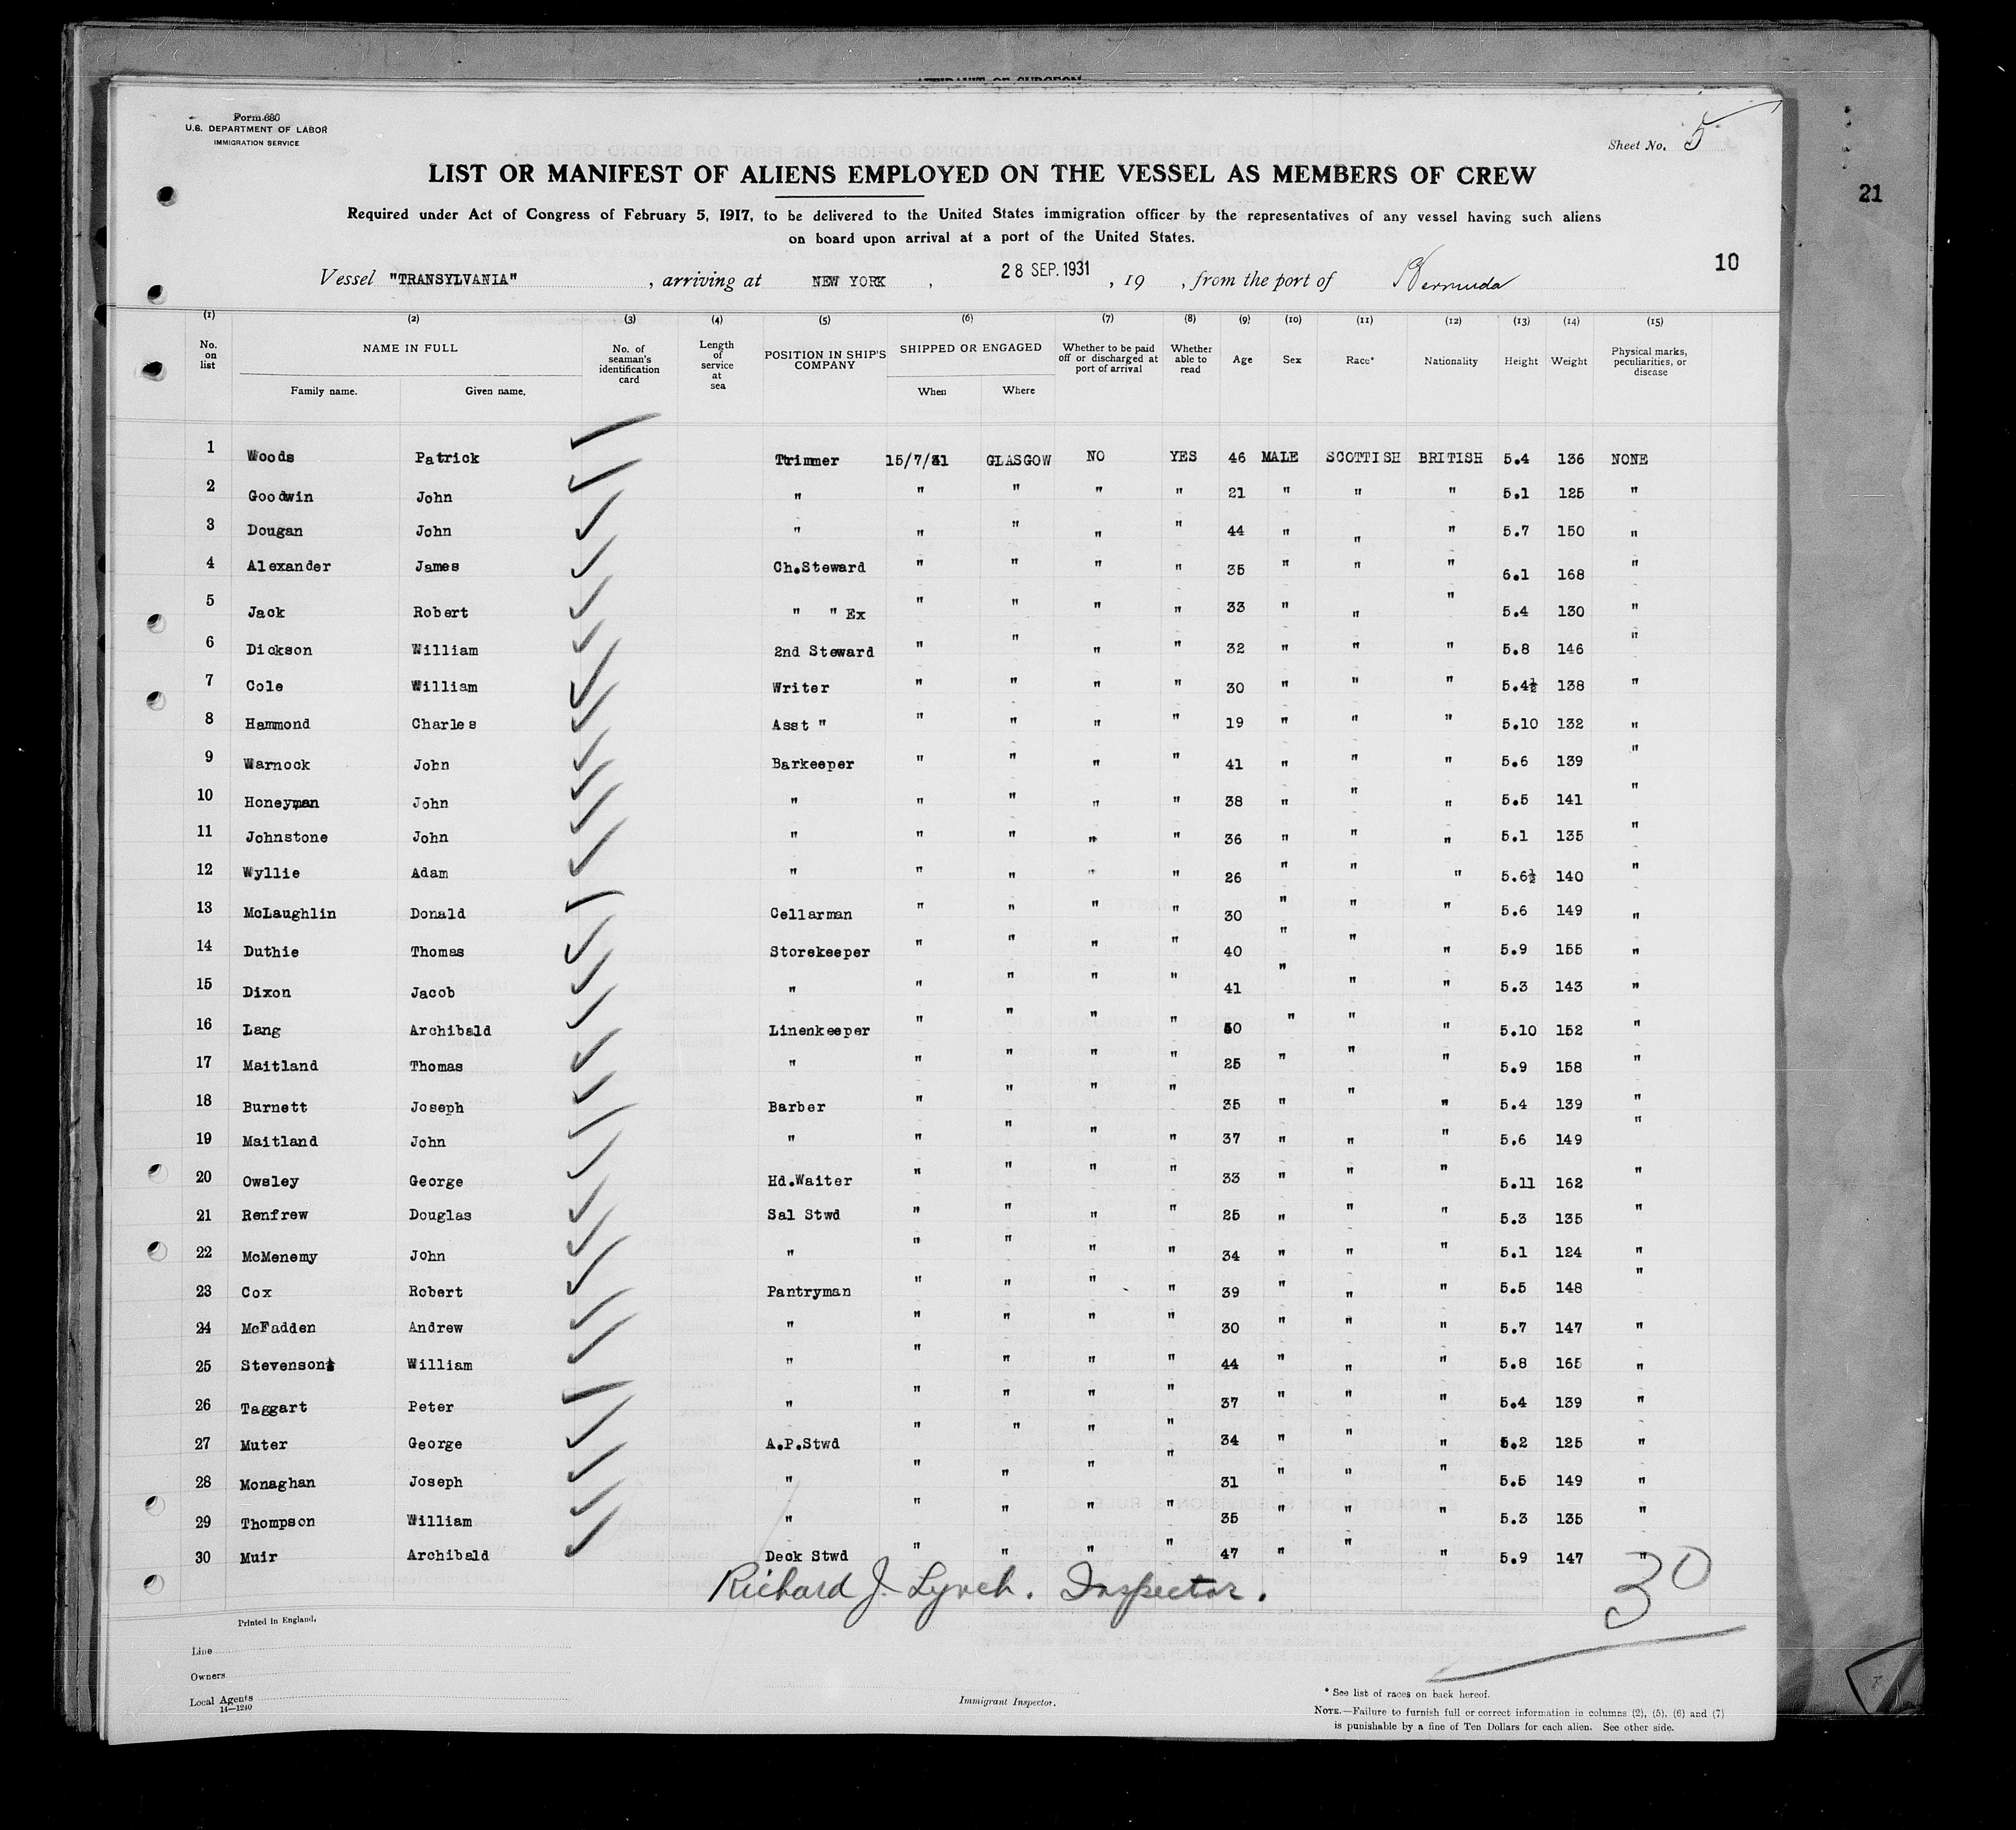 AFFIDAVIT OF SURGEON
Form 680
U.S. DEPARTMENT OF LABOR
IMMIGRATION SERVICE
Sheet No. 5
21
LIST OR MANIFEST OF ALIENS EMPLOYED ON THE VESSEL AS MEMBERS OF CREW
Required under Act of Congress of February 5, 1917, to be delivered to the United States immigration officer by the representatives of any vessel having such aliens
on board upon arrival at a port of the United States.
10
Vessel "TRANSYLVANIA" , arriving at NEW YORK , 28 SEP. 1931 , 19 , from the port of Bermuda
(1) (2) (3) (4) (5) (6) (7) (8) (9) (10) (11) (12) (13) (14) (15)
No. on list NAME IN FULL Family name. Given name. No. of seaman's identification card Length of service at sea POSITION IN SHIP'S COMPANY SHIPPED OR ENGAGED When Where Whether to be paid off or discharged at port of arrival Whether able to read Age Sex Race* Nationality Height Weight Physical marks, peculiarities, or disease
1 Woods Patrick Trimmer 15/7/31 GLASGOW NO YES 46 MALE SCOTTISH BRITISH 5.4 136 NONE
2 Goodwin John " " " " " 21 " " " 5.1 125 "
3 Dougan John " " " " " 44 " " " 5.7 150 "
4 Alexander James Ch.Steward " " " " 35 " " " 6.1 168 "
5 Jack Robert " " Ex " " " " 33 " " " 5.4 130 "
6 Dickson William 2nd Steward " " " " 32 " " " 5.8 146 "
7 Cole William Writer " " " " 30 " " " 5.4½ 138 "
8 Hammond Charles Asst " " " " " 19 " " " 5.10 132 "
9 Warnock John Barkeeper " " " " 41 " " " 5.6 139 "
10 Honeyman John " " " " " 38 " " " 5.5 141 "
11 Johnstone John " " " " " 36 " " " 5.1 135 "
12 Wyllie Adam " " " " " 26 " " " 5.6½ 140 "
13 McLaughlin Donald Cellarman " " " " 30 " " " 5.6 149 "
14 Duthie Thomas Storekeeper " " " " 40 " " " 5.9 155 "
15 Dixon Jacob " " " " " 41 " " " 5.3 143 "
16 Lang Archibald Linenkeeper " " " " 50 " " " 5.10 152 "
17 Maitland Thomas " " " " " 25 " " " 5.9 158 "
18 Burnett Joseph Barber " " " " 35 " " " 5.4 139 "
19 Maitland John " " " " " 37 " " " 5.6 149 "
20 Owsley George Hd.Waiter " " " " 33 " " " 5.11 162 "
21 Renfrew Douglas Sal Stwd " " " " 25 " " " 5.3 135 "
22 McMenemy John " " " " " 34 " " " 5.1 124 "
23 Cox Robert Pantryman " " " " 39 " " " 5.5 148 "
24 McFadden Andrew " " " " " 30 " " " 5.7 147 "
25 Stevenson William " " " " " 44 " " " 5.8 165 "
26 Taggart Peter " " " " " 37 " " " 5.4 139 "
27 Muter George A.P.Stwd " " " " 34 " " " 5.2 125 "
28 Monaghan Joseph " " " " " 31 " " " 5.5 149 "
29 Thompson William " " " " " 35 " " " 5.3 135 "
30 Muir Archibald Deck Stwd " " " " 47 " " " 5.9 147 "
Richard J. Lynch. Inspector.
30
Printed in England.
Line
Owners
Local Agents
14—1240
Immigrant Inspector.
* See list of races on back hereof.
NOTE.—Failure to furnish full or correct information in columns (2), (5), (6) and (7)
is punishable by a fine of Ten Dollars for each alien. See other side.